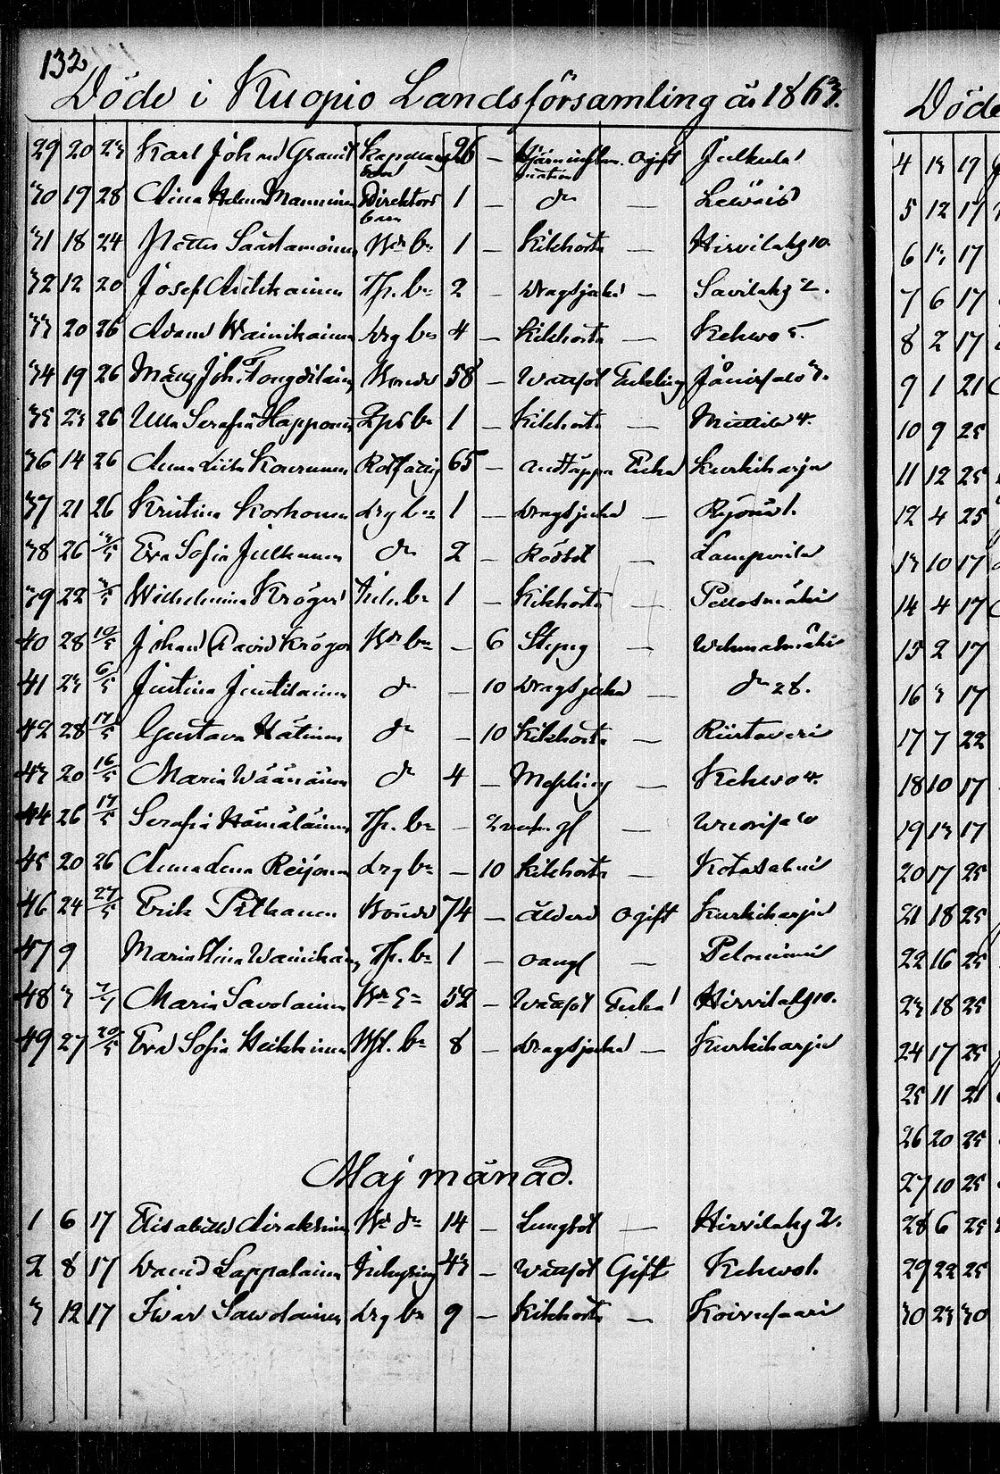 132
Döde i Kuopio Landsförsamling år 1863.
29 20 23 Karl Joh. Granit 26 — ogift Julkula
30 19 28 Aina Helena Manninen Direktors barn 1 — do —
31 18 24 Petter Saastamoinen Bd. bn 1 — Kikhosta — Hirvilaks 10.
32 12 20 Josef Antikainen Tp. bn 2 — Dragsjuka — Savilaks 2.
33 20 26 Adam Wainikainen Drg bn 4 — Kikhosta — Kehwo 5.
34 19 26 Måns Joh. Bonde 58 — Wattsot Enkling Jänissalo 3.
35 23 26 Ulla Serafia Happonen Inhs bn 1 — Kikhosta — Miettilä 4.
36 14 26 Anna Liisa Kovanen 65 — Andtäppa Enka Kurkiharju
37 21 26 Kristina Korhonen Drg bn 1 — Dragsjuka — 1.
38 26 3/5 Eva Sofia Julkunen do 2 — Rödsot — Lamperila
39 22 3/5 Wilhelmina Kröger Inh. bn 1 — Kikhosta — Pellosmäki
40 28 10/5 Johan David Kröger Bd bn — 6 Slag — Wehmasmäki
41 23 6/5 Justina Juutilainen do — 10 Dragsjuka — do 28.
42 28 17/5 Gustava Hätinen do — 10 Kikhosta — Riistaveri
43 20 16/5 Maria Wäänänen do 4 — Messling — Kehwo 4.
44 26 17/5 Serafia Hämäläinen Tp. bn — —
45 20 26 Anna Lena Reijonen Drg bn — 10 Kikhosta — Kotasalmi
46 24 27/5 Erik Pitkänen Bonde 74 — Ålderd ogift Kurkiharju
47 9 Maria Stina Wainikainen Tp. bn 1 — oangf —
48 3 7/7 Maria Savolainen 52 — Wattsot Enka Hirvilaks 10.
49 27 20/5 Eva Sofia Heikkinen bn 8 — Dragsjuka — Kurkiharju
Maj månad.
1 6 17 Elisabeth Airaksinen Bd dr 14 — Lungsot — Hirvilaks 2.
2 8 17 David Lappalainen Inhysing 43 — Wattsot Gift Kehwo 1.
3 12 17 Iwar Sawolainen Drg bn 9 — Kikhosta — Koivusaari
Döde
4 13 19
5 12 17
6 13 17
7 6 17
8 2 17
9 1 21
10 9 25
11 12 25
12 4 25
13 10 17
14 4 17
15 2 17
16 3 17
17 7 22
18 10 17
19 13 17
20 17 25
21 18 25
22 16 25
23 18 25
24 17 25
25 11 21
26 20 25
27 10 25
28 6 25
29 22 25
30 23 30